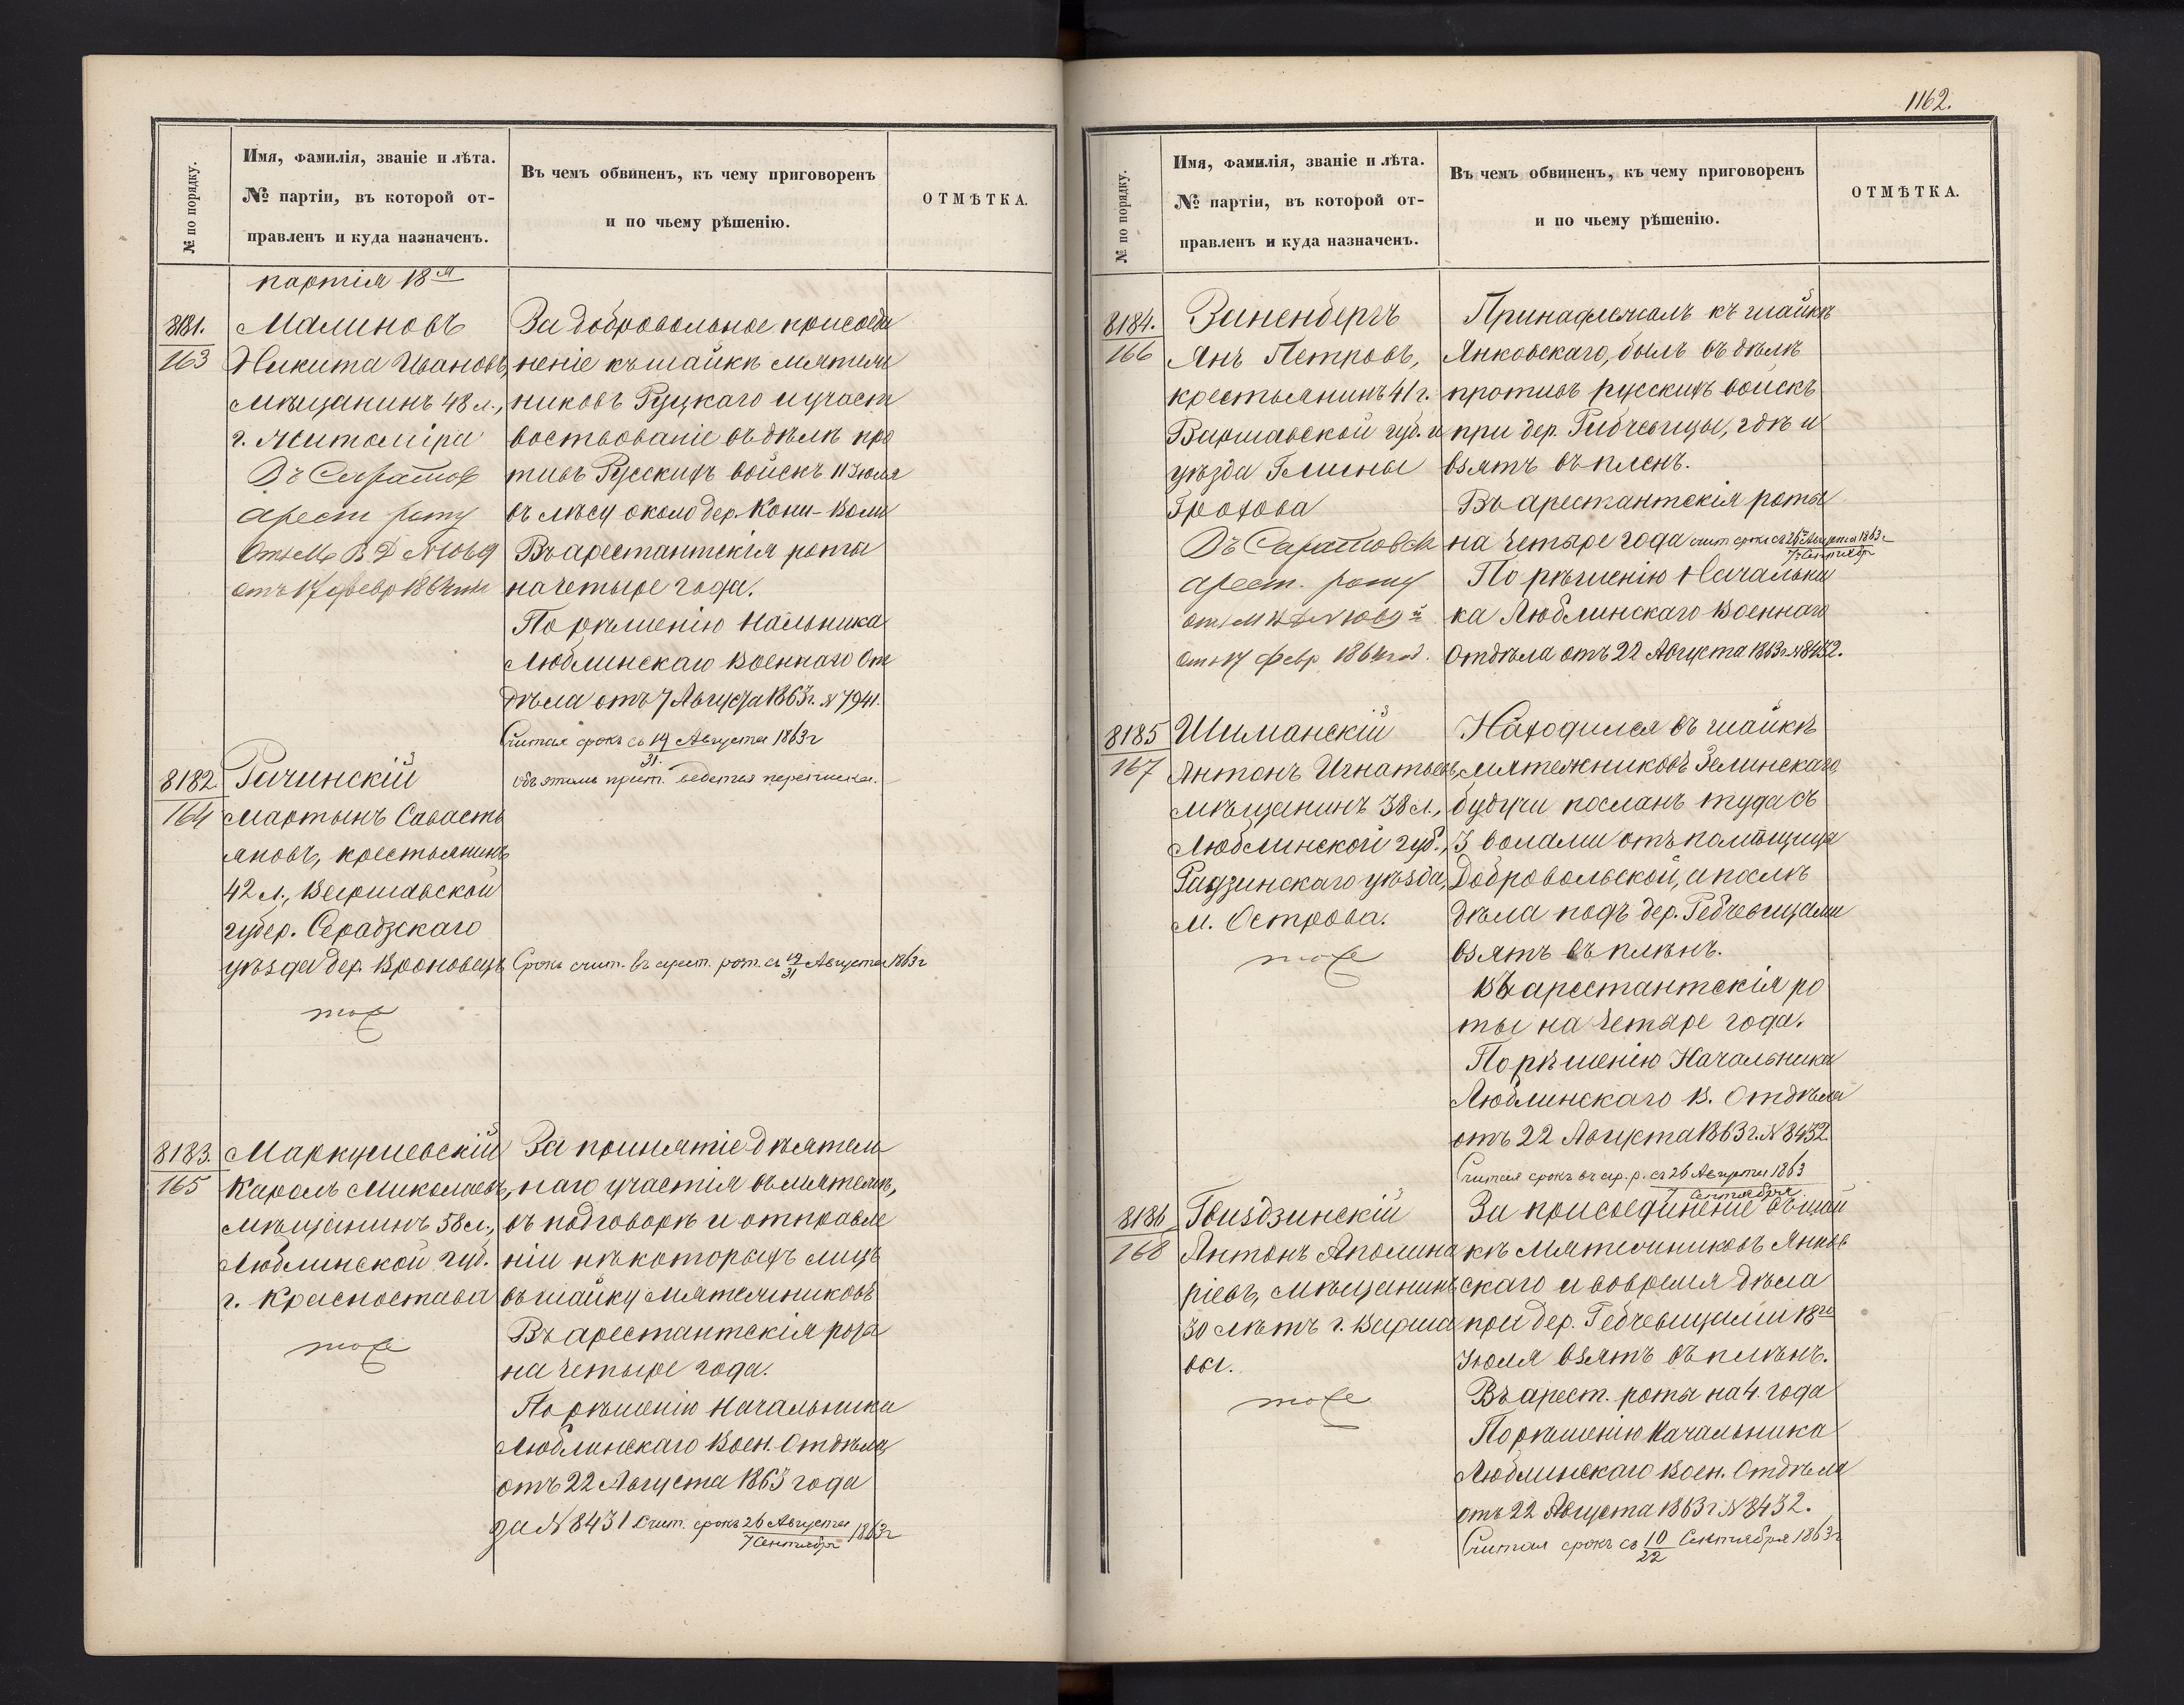 № по порядку.
Имя, фамилія, званіе и лѣта.
№ партіи, въ которой от-
правленъ и куда назначенъ.
Въ чемъ обвиненъ, къ чему приговоренъ
и по чьему рѣшенію.
ОТМѢТКА.
партія 18я
8181.
163
Малиновъ
Никита Ивановъ,
мѣщанинъ 48 л.,
г. Житоміра
Въ Саратов
арест роту
отъ 17 февр 1864 год
За добровольное присоеди
неніе къ шайкѣ мятеж
никовъ Руцкаго и участ
вованіе въ дѣлѣ про
тивъ Русскихъ войскъ 11 Іюля
въ лѣсу около дер. Кони-Воли
Въ арестантскія роты
на четыре года.
По рѣшенію Нальника
Люблинскаго Военнаго От
дѣла отъ 7 Августа 1863 г. № 7941.
Считая срокъ съ 19/31 Августа 1863 г
8182.
164
Рачинскій
Мартынъ Савасть
яновъ, крестьянинъ
42 л., Варшавской
губер. Серадзскаго
уѣзда дер. Вроновецъ
тоже
объ этомъ прест. ведется переписка.
Срокъ счит. въ арест. рот. съ 19/31 Августа 1863 г
8183.
165
Маркушевскій
Кароль Миколаевъ,
мѣщанинъ 58 л.,
Люблинской губ.
г. Красностава
тоже
За принятіе дѣятель
наго участія въ мятежѣ,
въ подговорѣ и отправле
ніи нѣкоторыхъ лицъ
въ шайку мятежниковъ
Въ арестантскія роты
на четыре года.
По рѣшенію Начальника
Люблинскаго Воен. Отдѣла
отъ 22 Августа 1863 года
за № 8431 Счит. срокъ 26 Августа/7 Сентября 1863 г
1162.
№ по порядку.
Имя, фамилія, званіе и лѣта.
№ партіи, въ которой от-
правленъ и куда назначенъ.
Въ чемъ обвиненъ, къ чему приговоренъ
и по чьему рѣшенію.
ОТМѢТКА.
8184.
166
Зиненбергъ
Янъ Петровъ,
крестьянинъ 41 г.
Варшавской губ. и
уѣзда Гмины
Грохова
Въ Саратовск
арест. роту
отъ 17 февр 1864 год.
Принадлежалъ къ шайкѣ
Янковскаго, былъ въ дѣлѣ
противъ русскихъ войскъ
при дер. Гибчевицы, гдѣ и
взятъ въ пленъ.
Въ арестантскія роты
на четыре года счит срокъ съ 26 Августа/7 Сентября 1863 г
По рѣшенію Начальни
ка Люблинскаго Военнаго
Отдѣла отъ 22 Августа 1863 г. № 8432.
8185
167
Шиманскій
Антонъ Игнатьевъ,
мѣщанинъ 38 л.,
Люблинской губ.,
Радзинскаго уѣзда,
м. Острова.
тоже
Находился въ шайкѣ
мятежниковъ Зелинскаго,
будучи посланъ туда съ
3 волами отъ помѣщицы
Добровольской, и послѣ
дѣла подъ дер. Гебчевицами
взятъ въ плѣнъ.
Въ арестантскія ро
ты на четыре года.
По рѣшенію Начальника
Люблинскаго В. Отдѣла
отъ 22 Августа 1863 г. № 8432.
Считая срокъ въ ар. р. съ 26 Августа/7 Сентября 1863
8186
168
Гвиздзинскій
Антонъ Аполина
ріевъ, мѣщанинъ
30 лѣтъ г. Варша
вы.
тоже
За присоединеніе въ шай
кѣ Мятежниковъ Янков
скаго и вовремя дѣла
при дер. Гебчевицами 18го
Іюля взятъ въ плѣнъ.
Въ арест. роты на 4. года
По рѣшенію Начальника
Люблинскаго Воен. Отдѣла
отъ 22 Августа 1863 г. № 8432.
Считая срокъ съ 10/22 Сентября 1863 г